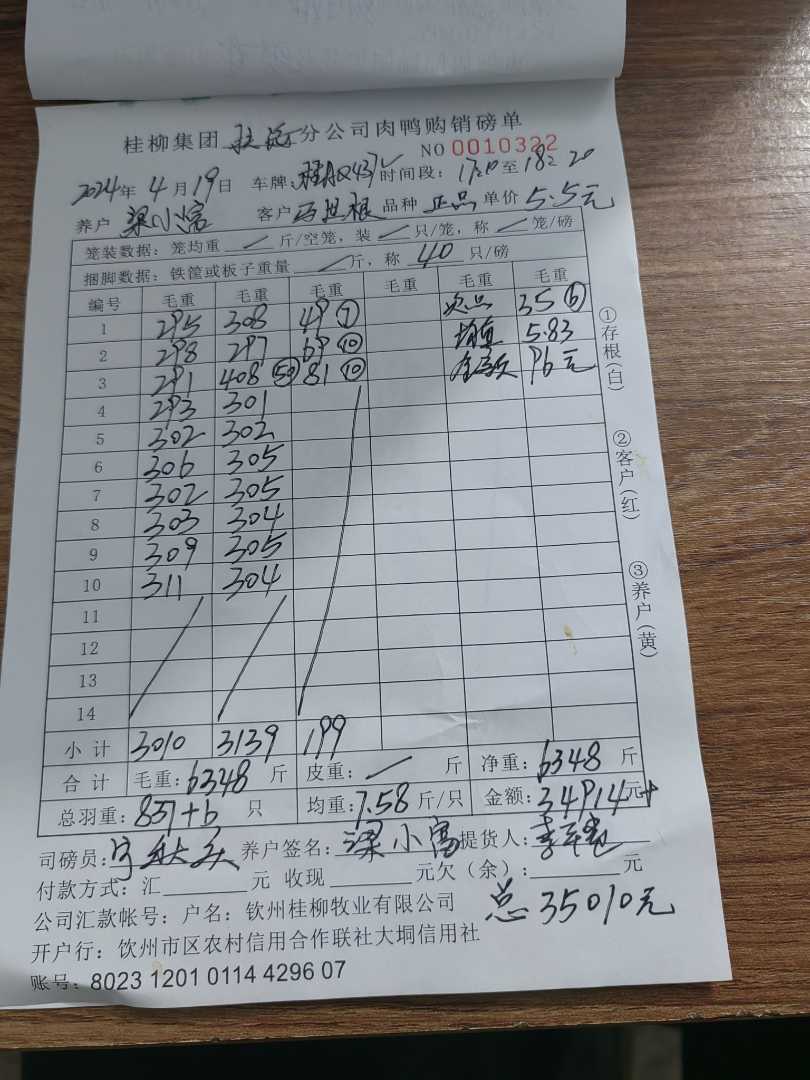 桂柳集团 分公司肉鸭购销磅单
NO 0010322
2024年 4月19日 车牌: 时间段: 17:20至18:20
养户 梁小富 客户 根 品种 正品 单价 5.5元
笼装数据:笼均重 / 斤/空笼,装 / 只/笼,称 / 笼/磅
捆脚数据:铁筐或板子重量 / 斤,称 40 只/磅
编号 毛重 毛重 毛重 毛重 毛重 毛重
1 295 308 49⑦ 次品 35⑥
2 298 297 69⑩ 均重 5.83
3 291 408㊿ 81⑩ 金额 96元
4 293 301
5 302 302
6 306 305
7 302 305
8 303 304
9 309 305
10 311 304
11
12
13
14
小计 3010 3139 199
合计 毛重:6348 斤 皮重: / 斤 净重:6348 斤
总羽重:837+6 只 均重:7.58斤/只 金额:34914元+
司磅员: 养户签名:梁小富 提货人:
付款方式:汇 元 收现 元欠(余): 元
公司汇款帐号:户名:钦州桂柳牧业有限公司 总35010元
开户行:钦州市区农村信用合作联社大垌信用社
账号:8023 1201 0114 4296 07
①存根(白) ②客户(红) ③养户(黄)